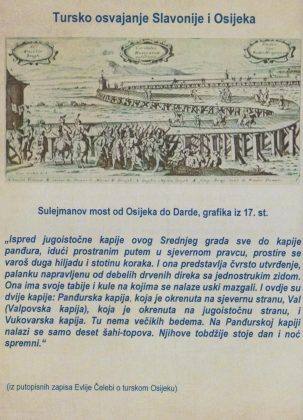 Tursko osvajanje Slavonije i Osijeka
Sulejmanov most od Osijeka do Darde, grafika iz 17. st.
„Ispred jugoistočne kapije ovog Srednjeg grada sve do kapije
panđura, idući prostranim putem u sjevernom pravcu, prostire se
varoš duga hiljadu i stotinu koraka. I ona predstavlja čvrsto utvrđenje,
palanku napravljenu od debelih drvenih direka sa jednostrukim zidom.
Ona ima svoje tabije i kule na kojima se nalaze uski mazgali. I ovdje su
dvije kapije: Panđurska kapija, koja je okrenuta na sjevernu stranu, Val
(Valpovska kapija), koja je okrenuta na jugoistočnu stranu, i
Vukovarska kapija. Tu nema večikih bedema. Na Panđurskoj kapiji
nalazi se samo deset šahi-topova. Njihove tobdžije stoje dan i noć
spremni.“
(iz putopisnih zapisa Evlije Čelebi o turskom Osijeku)